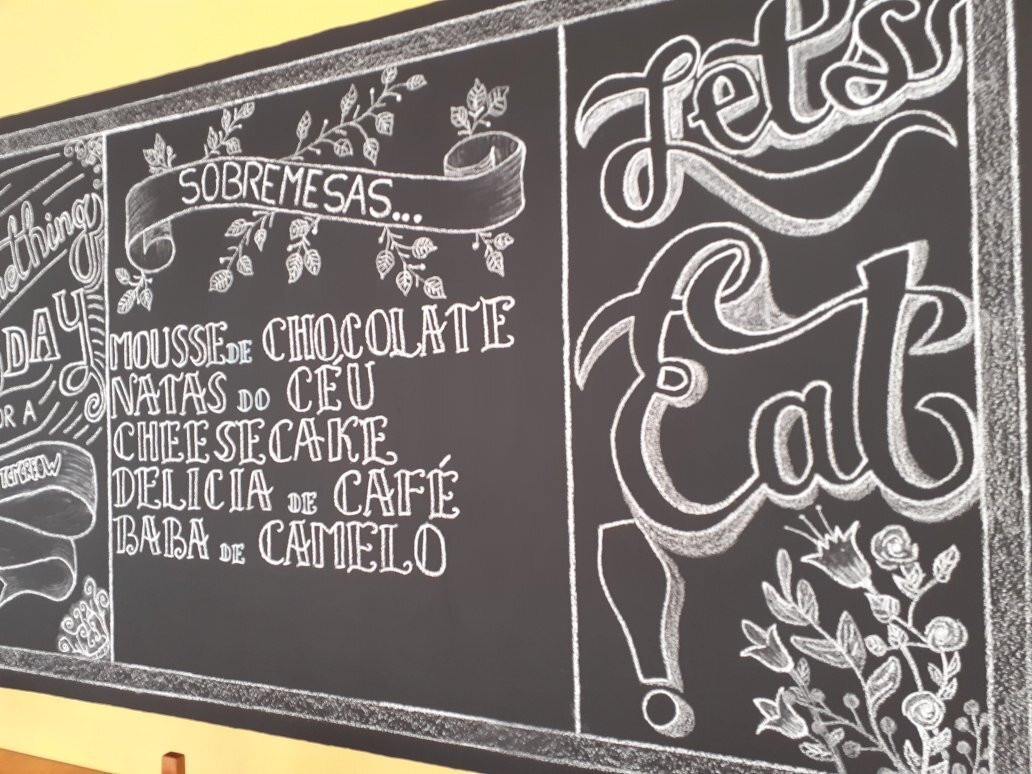 DAY
SOBREMESAS...
MOUSSE DE CHOCOLATE
NATAS DO CÉU
CHEESECAKE
DELICIA DE CAFÉ
BABA DE CAMELO
Lets
Eat
!